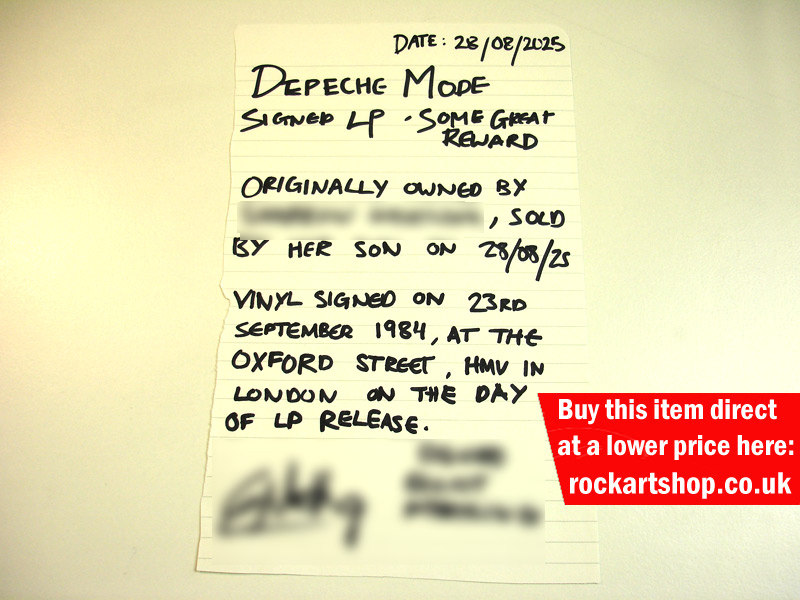 DATE: 28/08/2025
DEPECHE MODE
SIGNED LP - SOME GREAT
REWARD
ORIGINALLY OWNED BY
, SOLD
BY HER SON ON 28/08/25
VINYL SIGNED ON 23RD
SEPTEMBER 1984, AT THE
OXFORD STREET, HMV IN
LONDON ON THE DAY
OF LP RELEASE.
Buy this item direct
at a lower price here:
rockartshop.co.uk